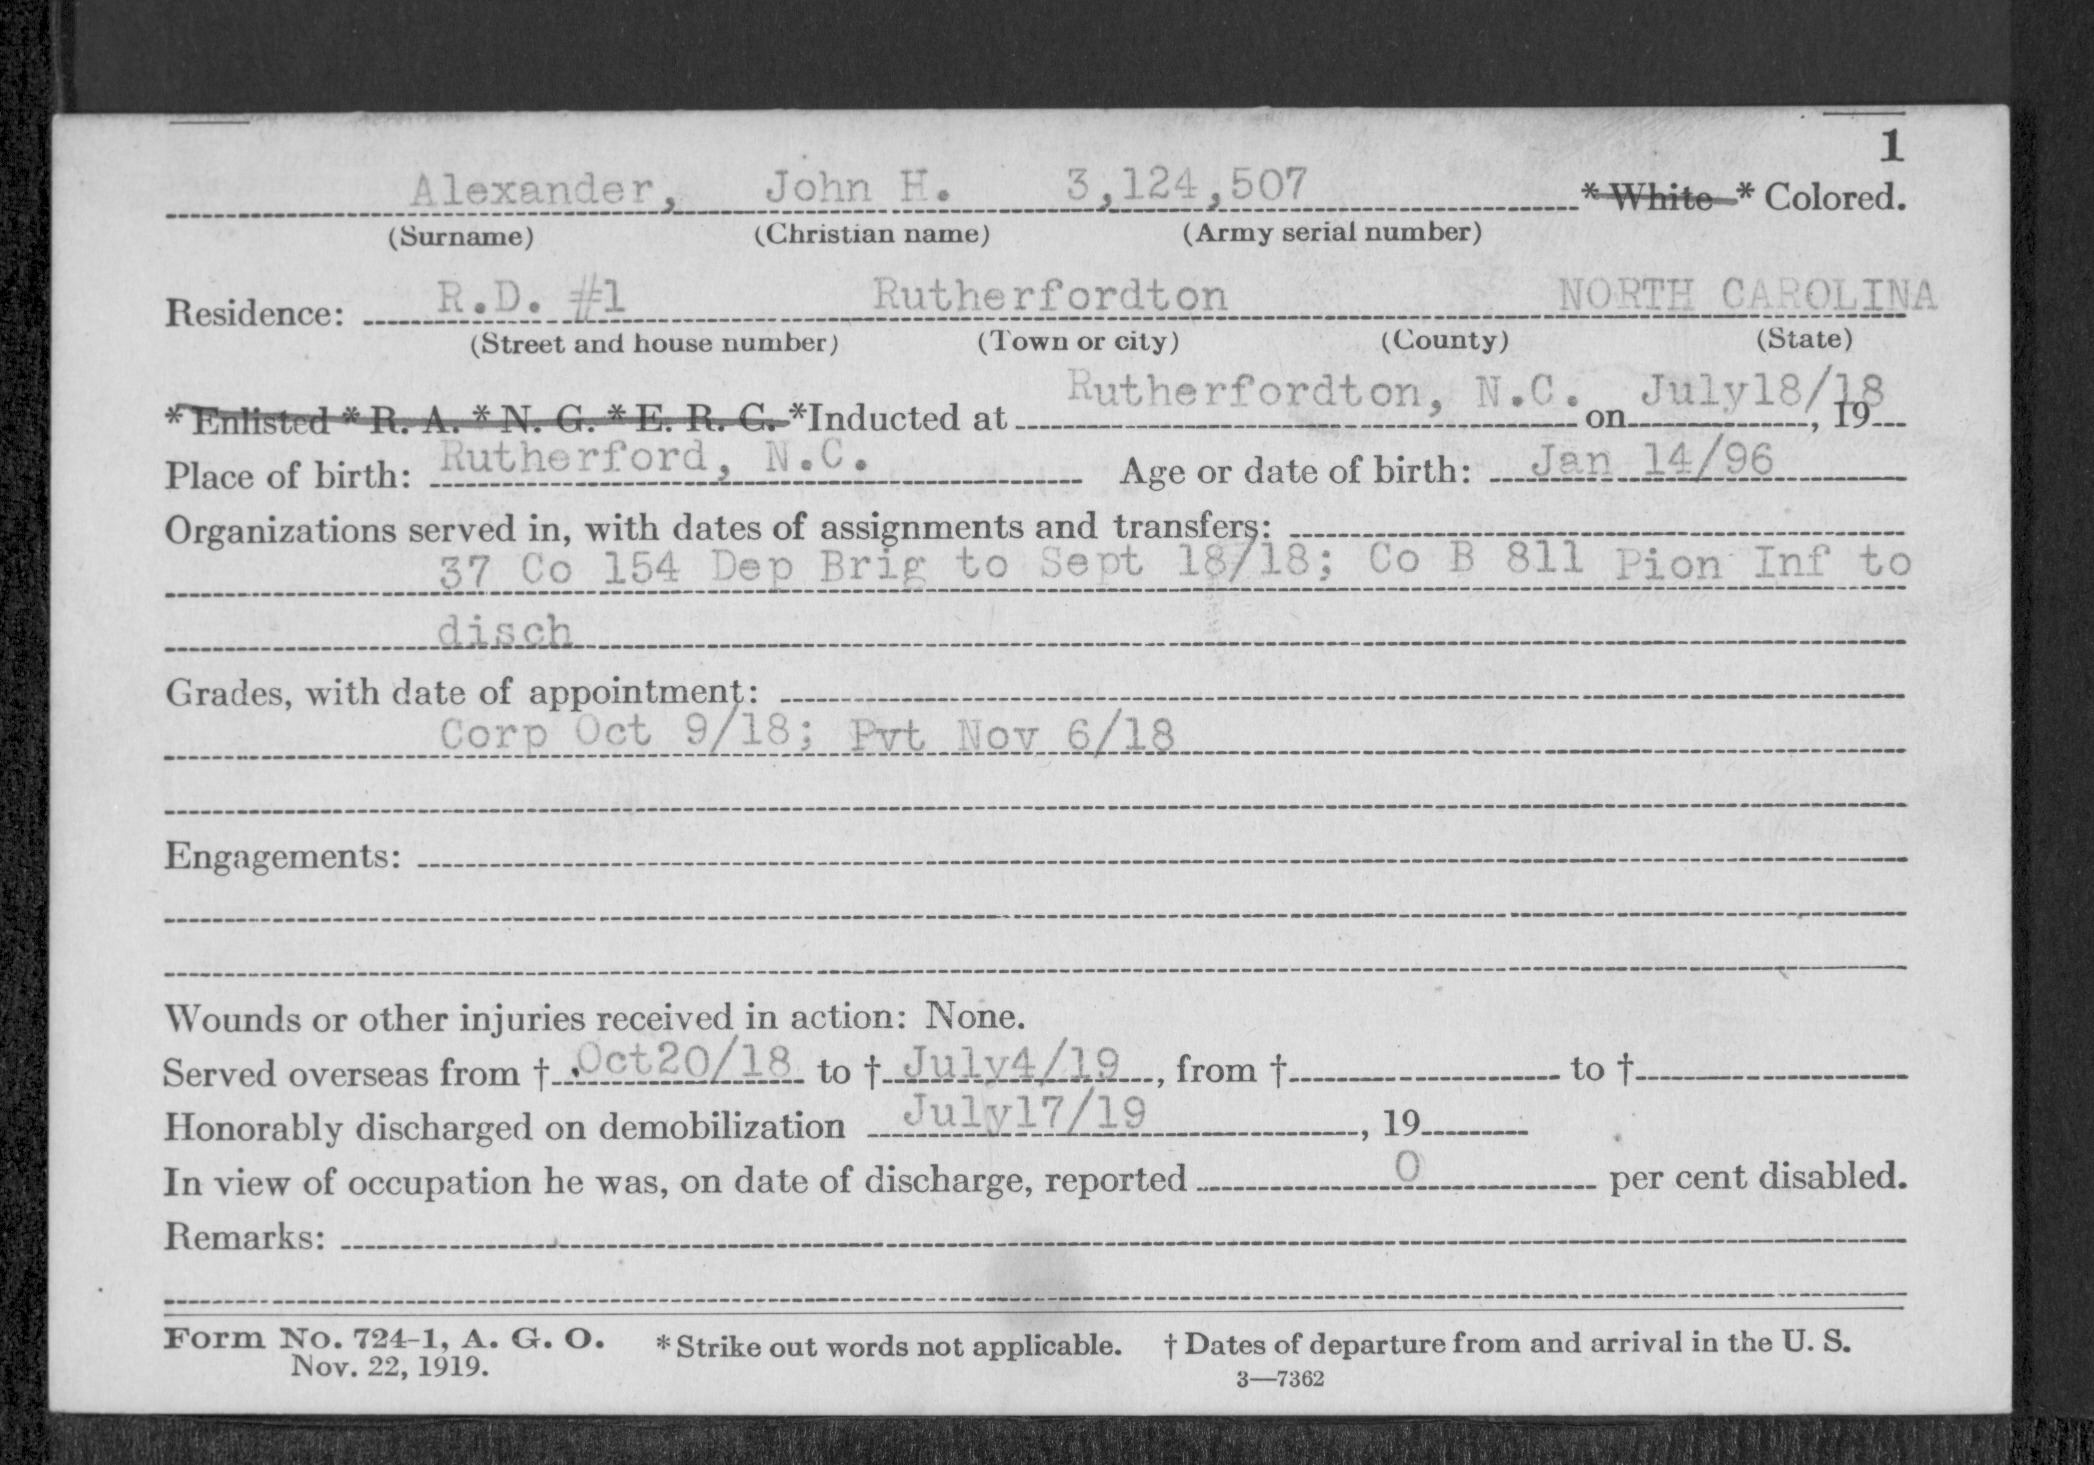 1
Alexander, John H. 3,124,507 * White * Colored.
(Surname) (Christian name) (Army serial number)
Residence: R.D. #1 Rutherfordton NORTH CAROLINA
(Street and house number) (Town or city) (County) (State)
* Enlisted * R. A. * N. G. * E. R. C. *Inducted at Rutherfordton, N.C. on July18/18, 19
Place of birth: Rutherford, N.C. Age or date of birth: Jan 14/96
Organizations served in, with dates of assignments and transfers:
37 Co 154 Dep Brig to Sept 18/18; Co B 811 Pion Inf to
disch
Grades, with date of appointment:
Corp Oct 9/18; Pvt Nov 6/18
Engagements:
Wounds or other injuries received in action: None.
Served overseas from † Oct20/18 to † July4/19, from † to †
Honorably discharged on demobilization July17/19, 19
In view of occupation he was, on date of discharge, reported 0 per cent disabled.
Remarks:
Form No. 724-1, A. G. O. * Strike out words not applicable. † Dates of departure from and arrival in the U. S.
Nov. 22, 1919. 3—7362